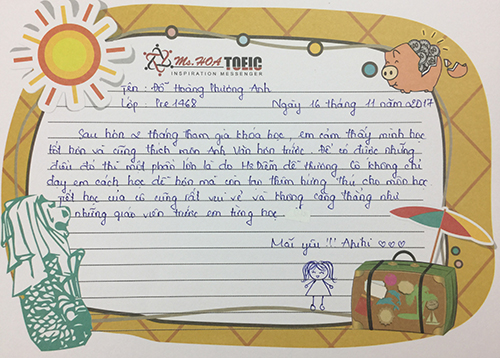 Ms.HOA TOEIC
INSPIRATION MESSENGER
Tên : Đỗ Hoàng Phương Anh
Lớp : Pre 1468 Ngày 16 tháng 11 năm 2017
Sau hơn 2 tháng tham gia khóa học, em cảm thấy mình học
tốt hơn và cũng thích môn Anh Văn hơn trước. Để có được những
điều đó thì một phần lớn là do Ms Diễm dễ thương. Cô không chỉ
dạy em cách học dễ hơn mà còn tạo thêm hứng thú cho môn học
tiết học của cô cũng rất vui vẻ và không căng thẳng như
những giáo viên trước em từng học.
Mãi yêu !!!